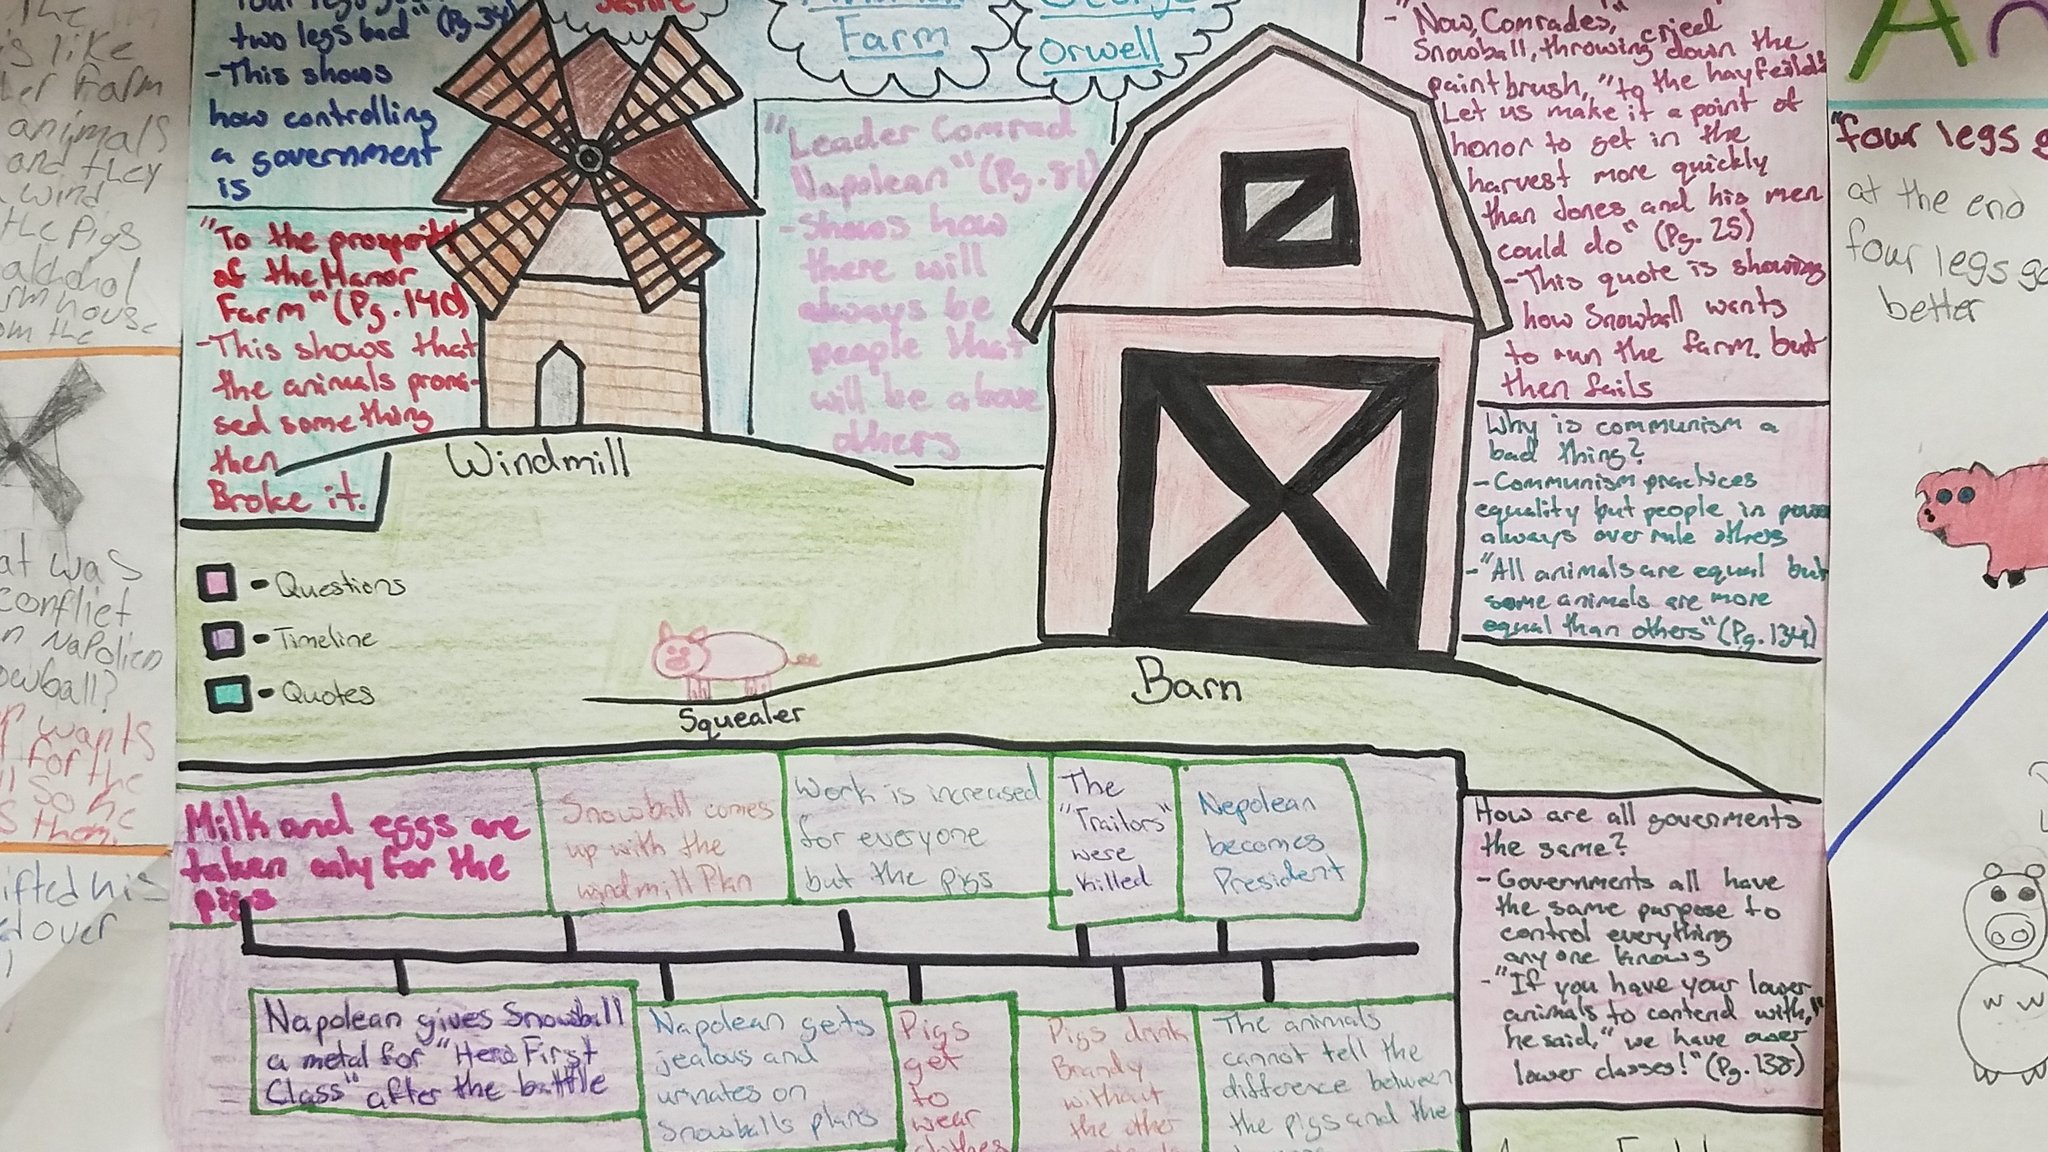 two legs bad" (Pg.34)
-This shows
how controlling
a government
is
"To the prosperity
of the Manor
Farm" (Pg.140)
-This shows that
the animals promi-
sed something
then
Broke it.
Farm
George
Orwell
"Leader Comrad
Napolean" (Pg.81)
-shows how
there will
always be
people that
will be above
others
-"Now, Comrades," cried
Snowball, throwing down the
paintbrush, "to the hayfeild!
Let us make it a point of
honor to get in the
harvest more quickly
than Jones and his men
could do" (Pg. 25)
-This quote is showing
how Snowball wants
to run the farm. but
then fails
Why is communism a
bad thing?
-Communism practices
equality but people in power
always over rule others
-"All animals are equal but
some animals are more
equal than others" (Pg.134)
Windmill
Barn
Squealer
-Questions
-Timeline
-Quotes
Milk and eggs are
taken only for the
pigs
Snowball comes
up with the
windmill Plan
Work is increased
for everyone
but the pigs
The
"Traitors"
were
killed
Nepolean
becomes
President
Napolean gives Snowball
a metal for "Hero First
Class" after the battle
Napolean gets
jealous and
urinates on
Snowballs plans
Pigs
get
to
wear
clothes
Pigs drink
Brandy
without
the other
The animals
cannot tell the
difference between
the pigs and the
How are all goverments
the same?
-Governments all have
the same purpose to
control everything
any one knows
-"If you have your lower
animals to contend with,"
he said, "we have ower
lower classes!" (Pg.138)
is like
Farm
animals
and they
wind
the pigs
alckohol
the
was
conflict
Napolien
wants
for the
so he
them.
his
over
"four legs
at the end
four legs
better